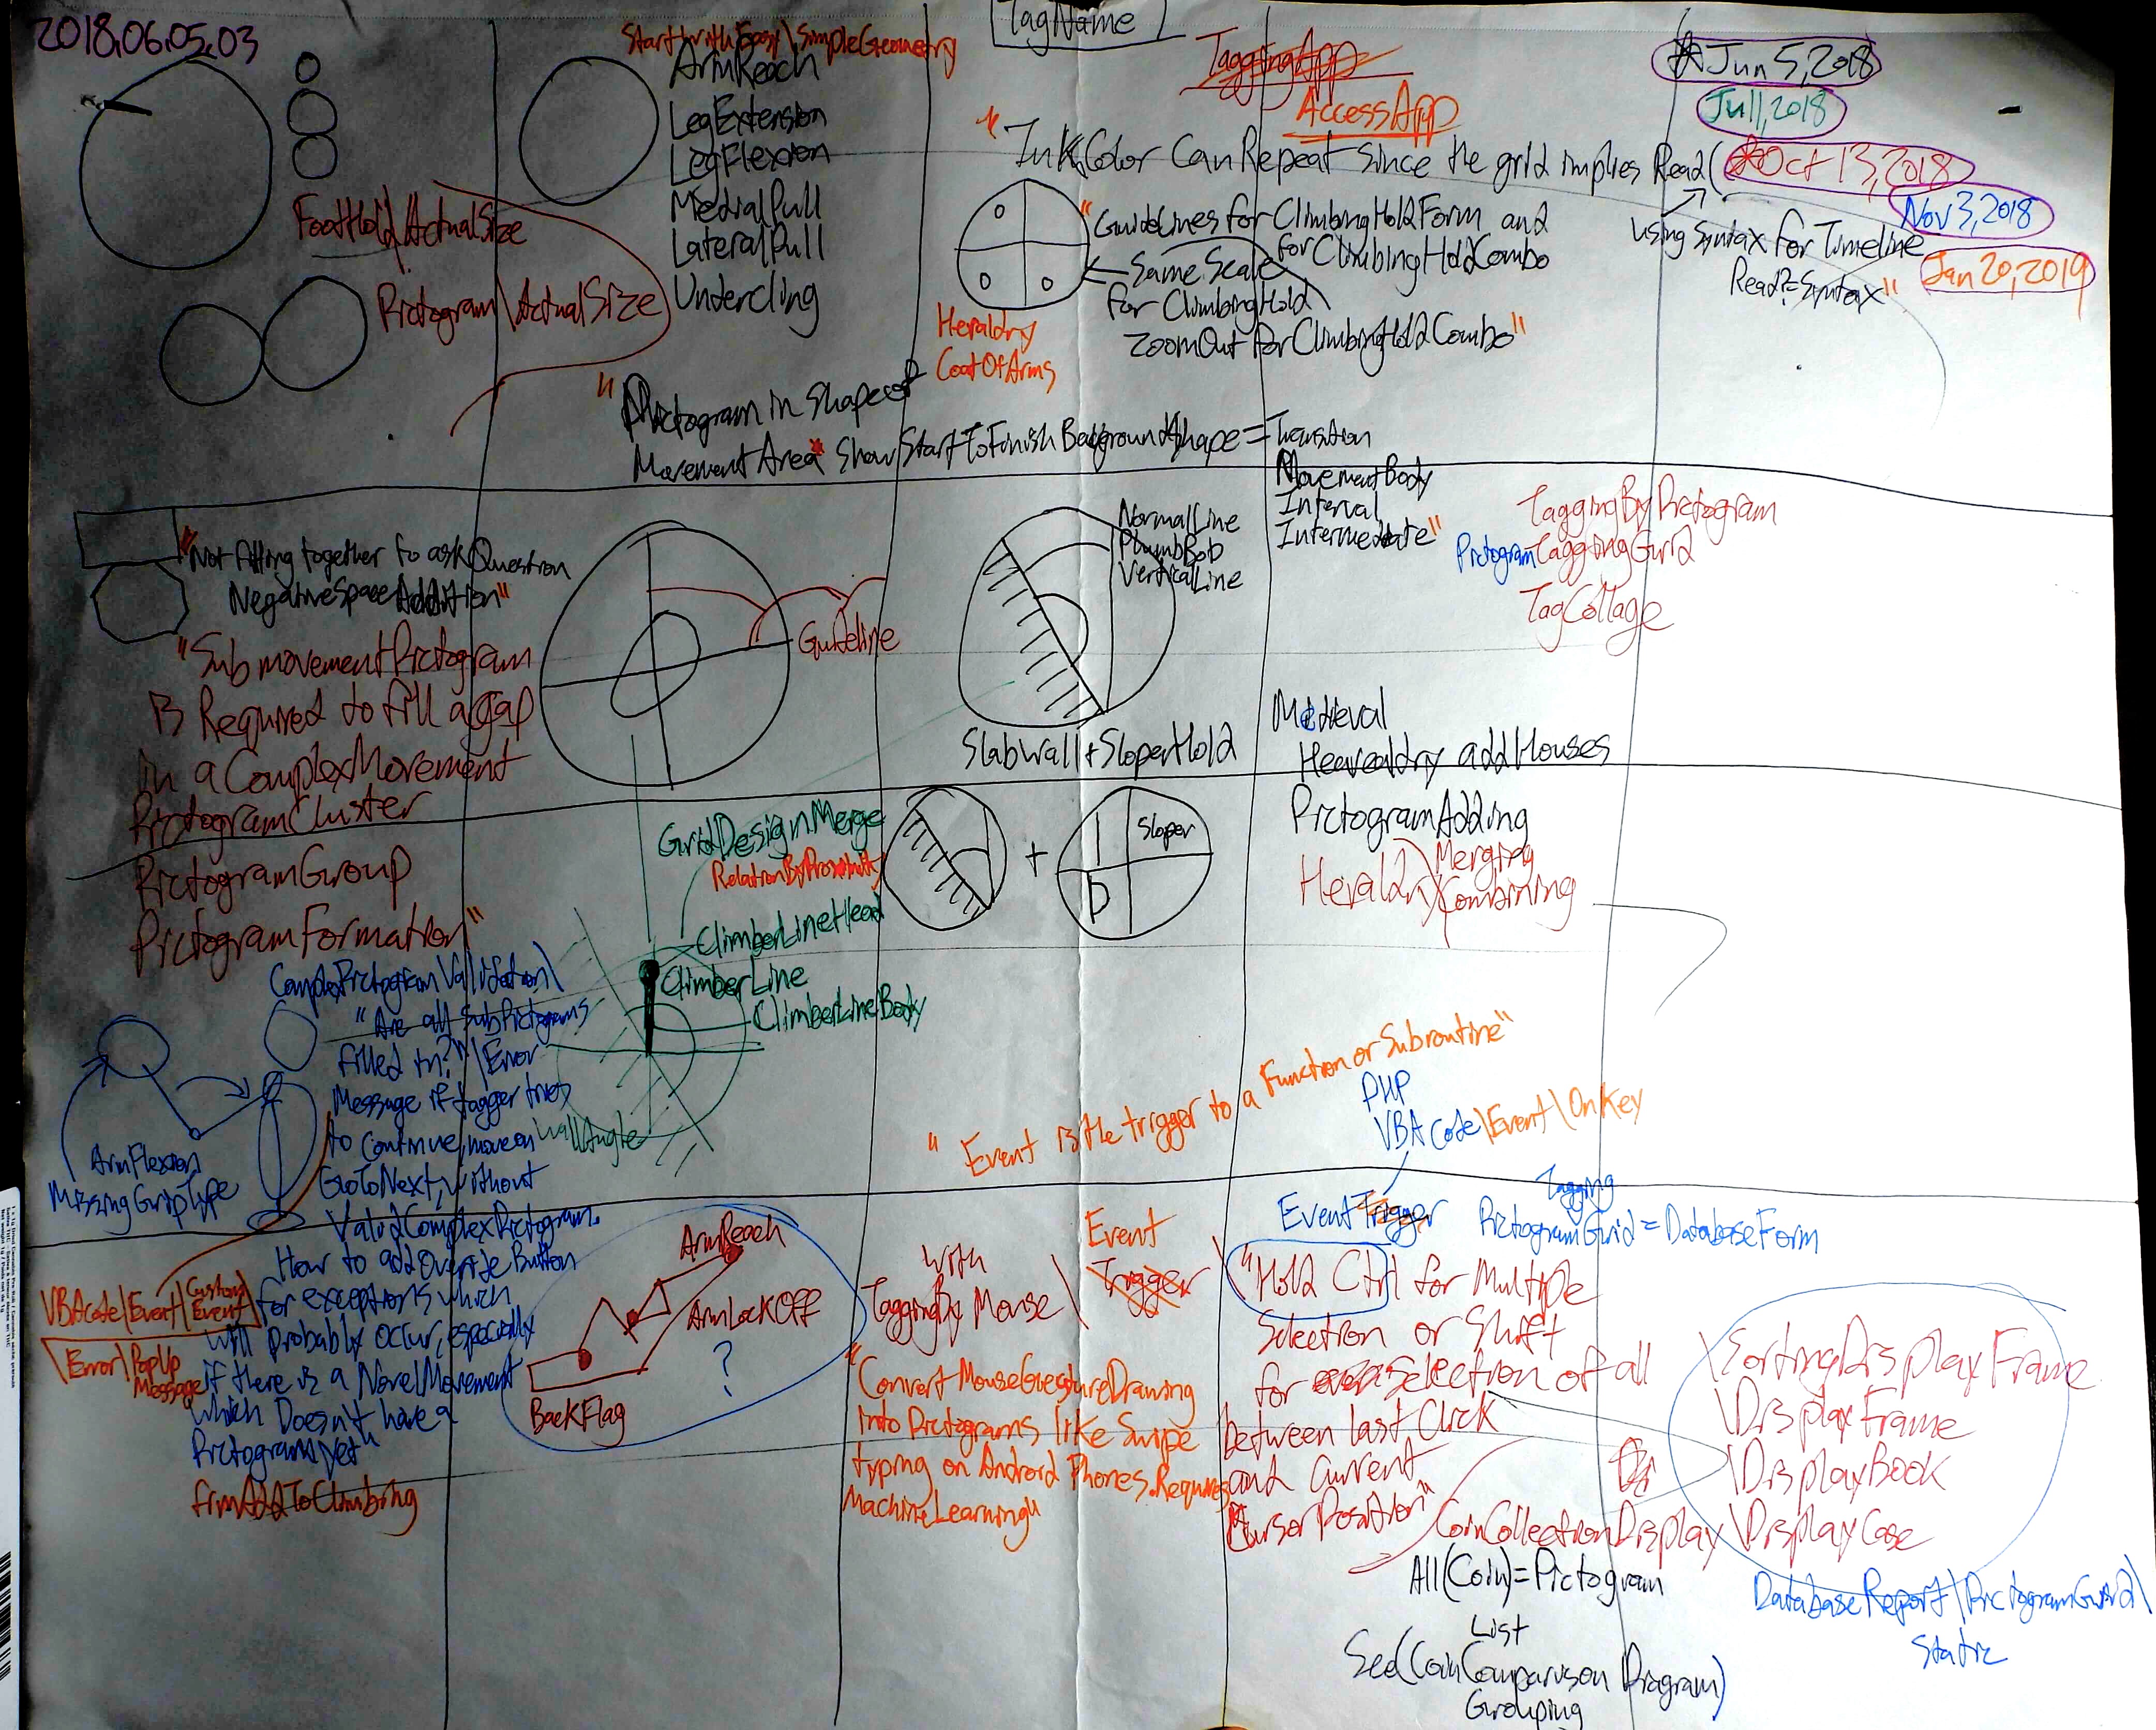 2018.06.05.03
TagName
Start with Easy\SimpleGeometry
ArmReach
LegExtension
LegFlexion
MedialPull
LateralPull
Undercling
FootHold\ActualSize
Pictogram\ActualSize
TaggingApp
AccessApp
"InkColor Can Repeat since the grid implies Read(
Jun 5, 2018
Jul 1, 2018
Oct 13, 2018
Nov 3, 2018
Jan 20, 2019
using Syntax for Timeline
Read?=Syntax"
"Guidelines for ClimbingHold Form and
for ClimbingHoldCombo
Same Scale
for ClimbingHold
ZoomOut for ClimbingHoldCombo"
Heraldry
CoatOfArms
"Pictogram in Shape of
MovementArea" Show StartToFinish BackgroundShape = Transition
MovementBody
Interval
Intermediate"
TaggingByPictogram
PictogramTaggingGrid
TagCollage
"Not fitting together to ask Question
NegativeSpace Addition"
"SubmovementPictogram
is Required to fill a gap
in a ComplexMovement
PictogramCluster
PictogramGroup
PictogramFormation"
Guideline
NormalLine
PlumbBob
VerticalLine
SlabWall+SloperHold
Medieval
Hearaldry add Houses
PictogramAdding
Merging
Heraldry Combining
GridDesignMerge
RelationByProximity
+
Sloper
ClimberLineHead
ClimberLine
ClimberLineBody
WallAngle
ComplexPictogramValidation\
"Are all SubPictograms
filled in?"\Error
Message if tagger tries
to continue, move on
GoToNext, without
Valid ComplexPictogram.
How to add Override Button
for exceptions which
will probably occur, especially
if there is a NovelMovement
which Doesn't have a
Pictogram Yet"
frmAddToClimbing
ArmFlexion
MissingGripType
VBAcode\Event\Custom
Event
\Error\PopUp
Message
ArmReach
ArmLockOff
?
BackFlag
"Event is the trigger to a Function or Subroutine"
PHP
VBACode\Event\OnKey
EventTrigger
Tagging
PictogramGrid = DatabaseForm
With
TaggingBy Mouse\
Event
Trigger
"Convert MouseGuestureDrawing
into Pictograms like Swipe
typing on Android Phones. Requires
MachineLearning"
\"Hold Ctrl for Multiple
Selection or Shift
for selection of all
between last Click
and Current
CursorPosition"
\SortingDisplayFrame
\DisplayFrame
\DisplayBook
CoinCollectionDisplay\DisplayCase
All(Coin)=Pictogram
List
See(CoinComparison Diagram)
Grouping
DatabaseReport\PictogramGrid\
Static